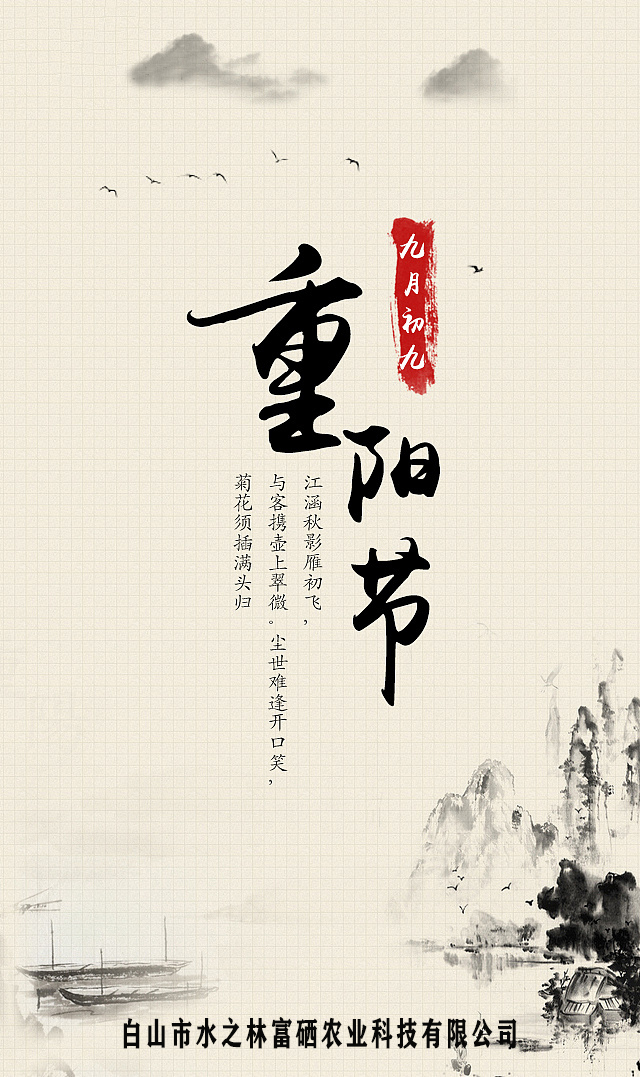 九月初九
重阳节
江涵秋影雁初飞，
与客携壶上翠微。尘世难逢开口笑，
菊花须插满头归
白山市水之林富硒农业科技有限公司